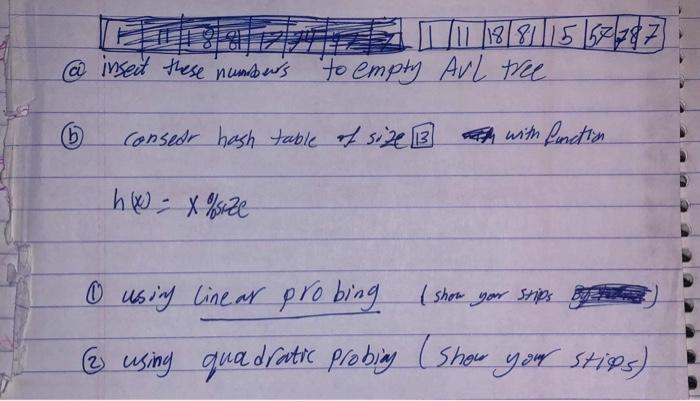 1 11 18 81 15 57 787
a insect these numbers to empty AVL tree
b consedr hash table of size 13 with function
h(x) = x % size
1 using linear probing ( show your stips )
2 using quadratic probing ( show your stips )